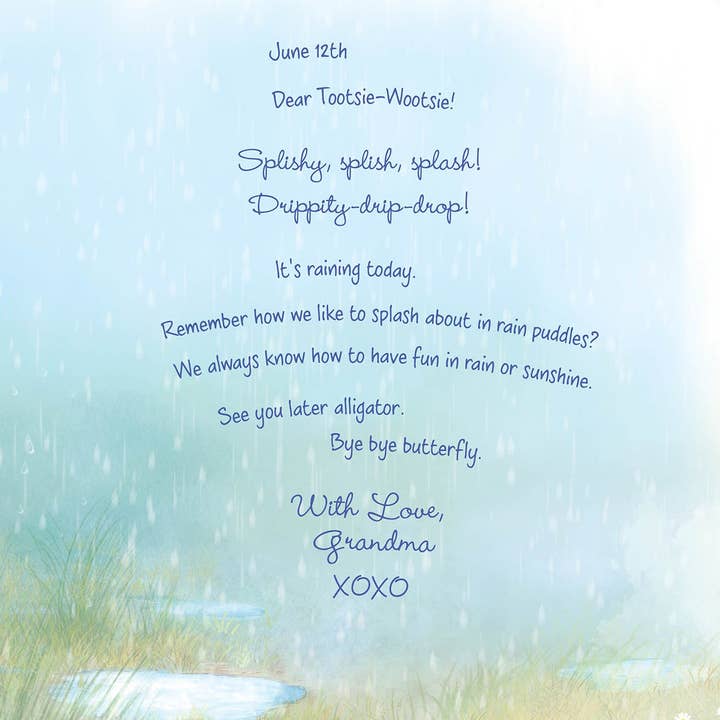 June 12th
Dear Tootsie-Wootsie!
Splishy, splish, splash!
Drippity-drip-drop!
It's raining today.
Remember how we like to splash about in rain puddles?
We always know how to have fun in rain or sunshine.
See you later alligator.
Bye bye butterfly.
With Love,
Grandma
XOXO